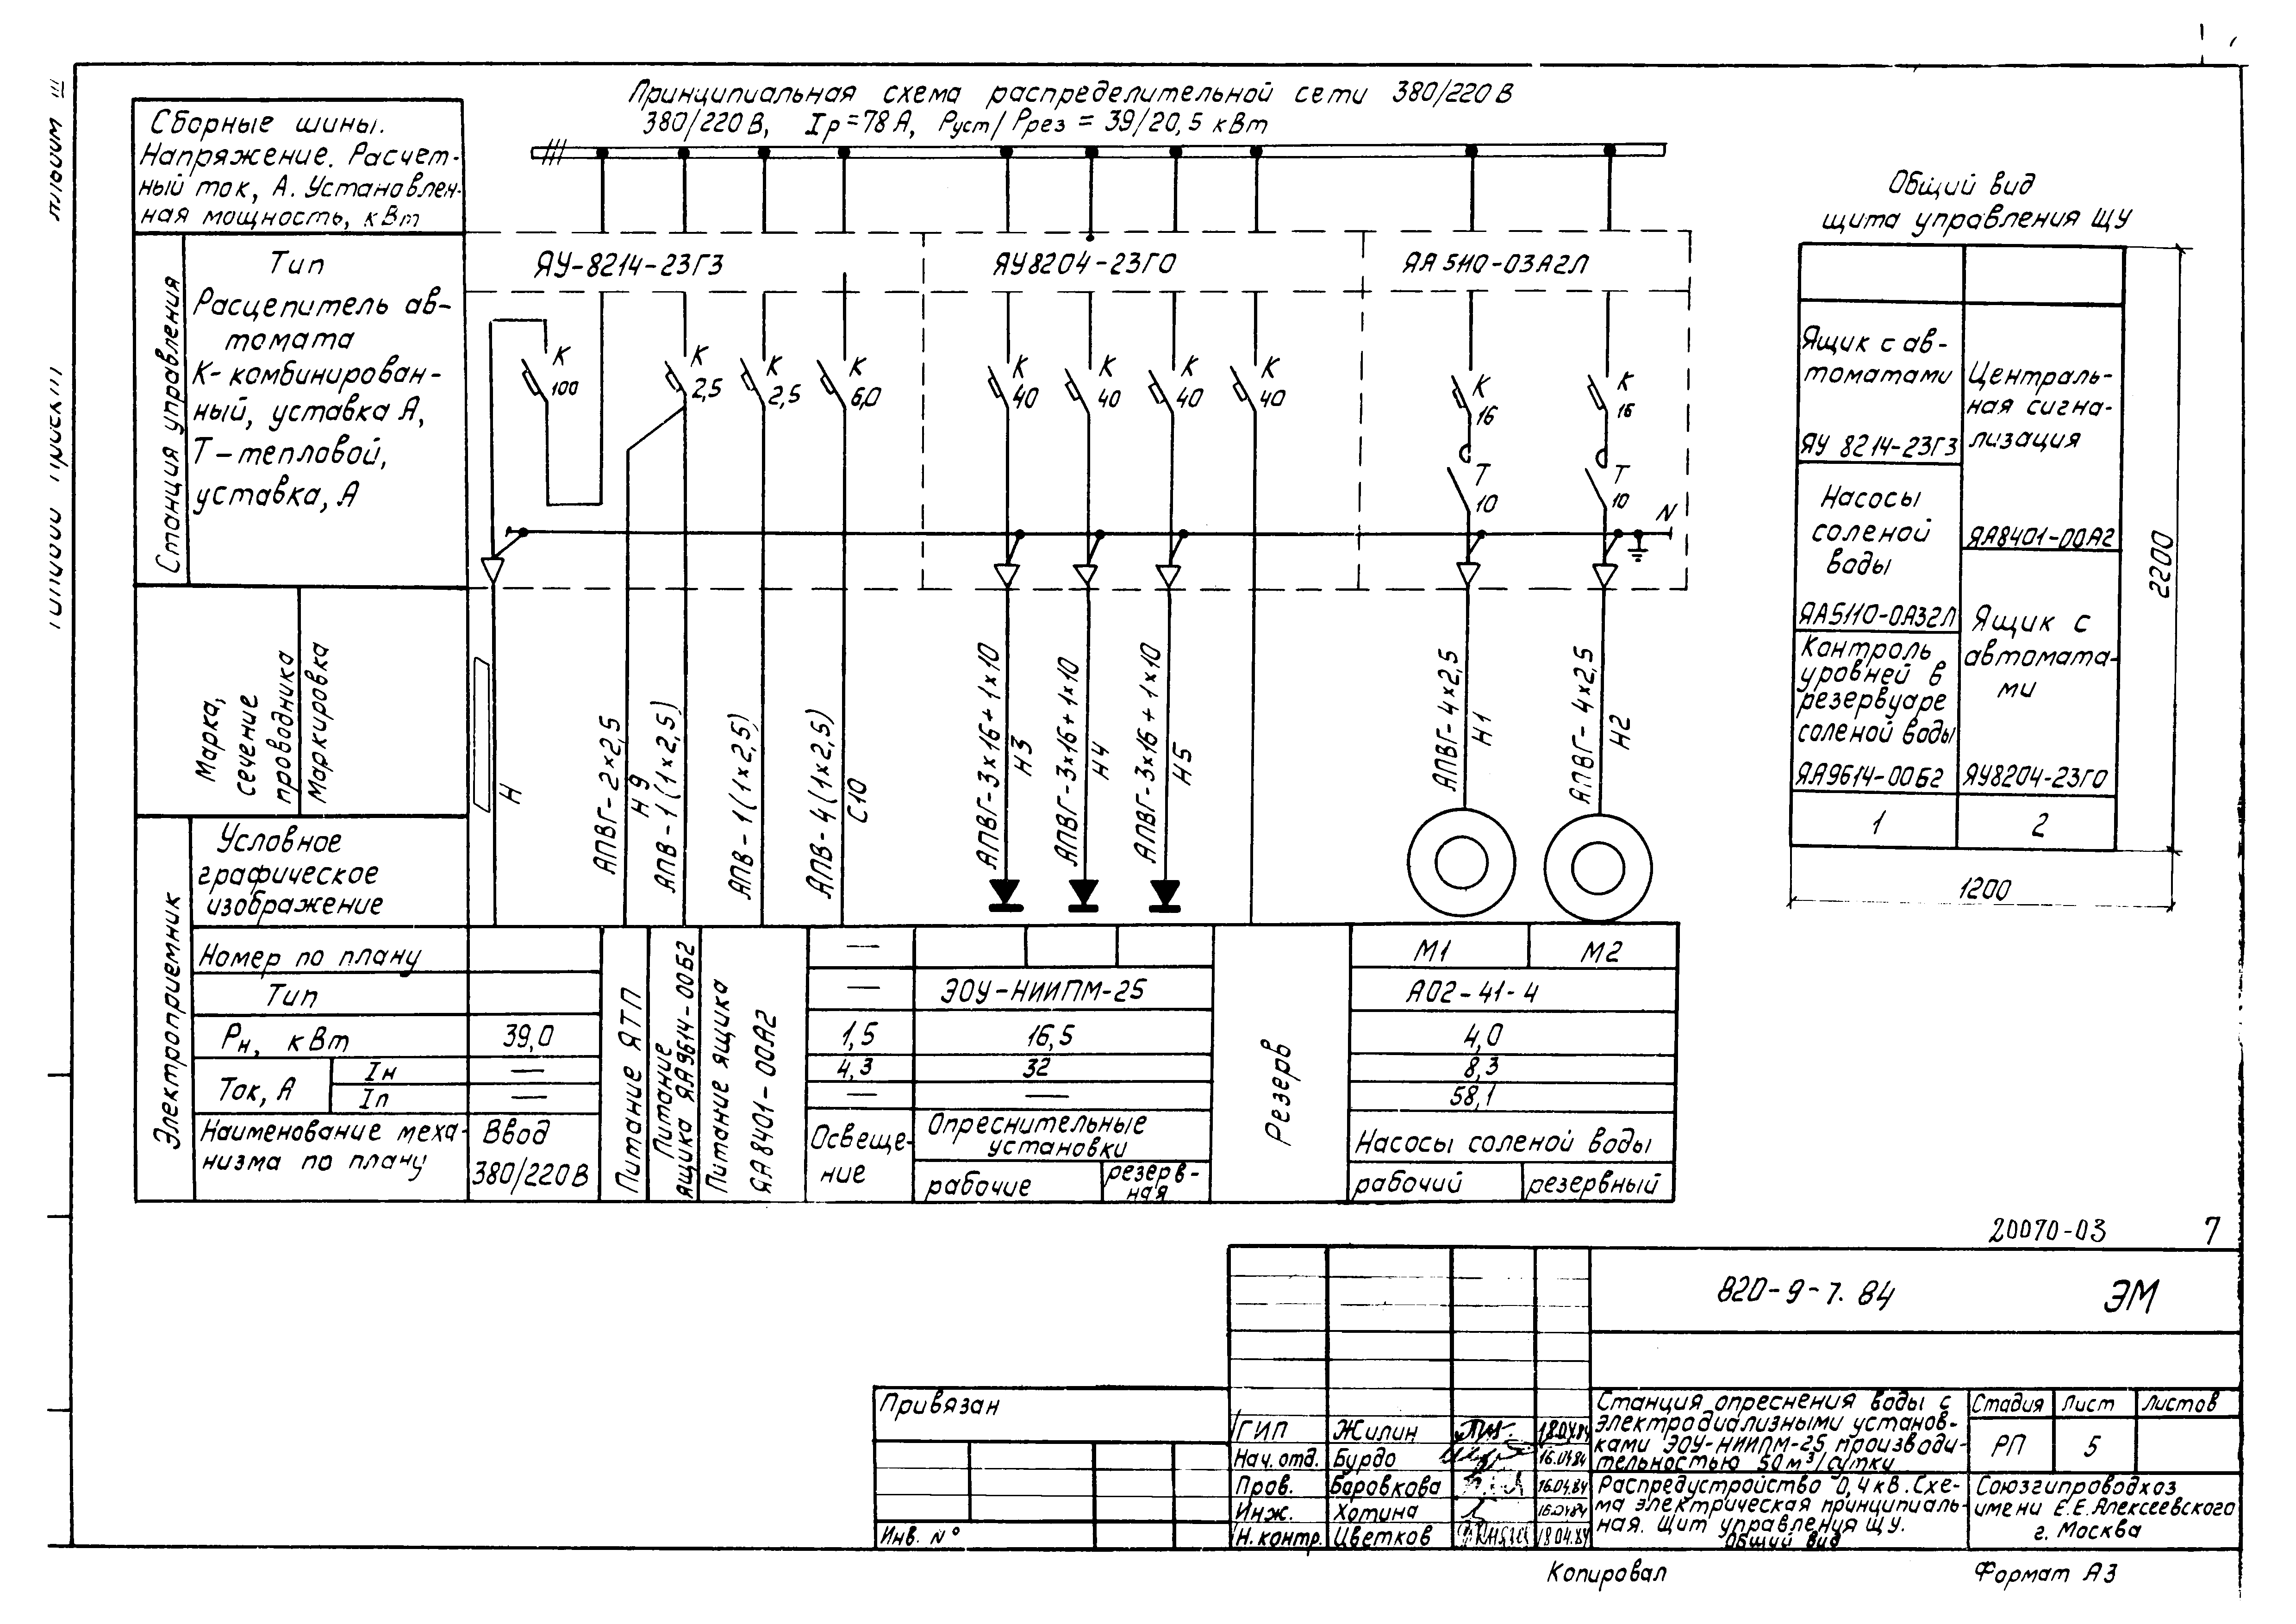 Альбом III
Типовой проект
Принципиальная схема распределительной сети 380/220 В
380/220 В, Iр=78 А, Руст/Ррез = 39/20,5 кВт
Сборные шины.
Напряжение. Расчет-
ный ток, А. Установлен-
ная мощность, кВт
Станция управления
Тип
Расцепитель ав-
томата
К- комбинирован-
ный, уставка А,
Т – тепловой,
уставка, А
ЯУ-8214-23Г3
ЯУ8204-23Г0
ЯА 5110-03А2Л
К
100
К
2,5
К
2,5
К
6,0
К
40
К
40
К
40
К
40
К
16
К
16
Т
10
Т
10
N
Марка,
сечение
проводника
Маркировка
Н
АПВГ- 2×2,5
Н9
АПВ-1(1×2,5)
АПВ-1(1×2,5)
АПВ-4(1×2,5)
С10
АПВГ-3×16+1×10
Н3
АПВГ-3×16+1×10
Н4
АПВГ-3×16+1×10
Н5
АПВГ-4×2,5
Н1
АПВГ-4×2,5
Н2
Электроприемник
Условное
графическое
изображение
Номер по плану
— М1 М2
Тип
— ЭОУ-НИИПМ-25 АО2-41-4
Рн, кВт 39,0 1,5 16,5 4,0
Ток, А
Iн — 4,3 32 8,3
Iп — — — 58,1
Наименование меха-
низма по плану
Ввод
380/220В
Питание ЯТП
Питание
ящика ЯА9614-00Б2
Питание ящика
ЯА8401-00А2
Освеще-
ние
Опреснительные
установки
рабочие
резерв-
ная
Резерв
Насосы соленой воды
рабочий резервный
Общий вид
щита управления ЩУ
Ящик с ав-
томатами
ЯУ 8214-23Г3
Насосы
соленой
воды
ЯА5110-0А32Л
Контроль
уровней в
резервуаре
соленой воды
ЯА9614-00Б2
1
Централь-
ная сигна-
лизация
ЯА8401-00А2
Ящик с
автомата-
ми
ЯУ8204-23Г0
2
2200
1200
20070-03 7
820-9-7.84 ЭМ
Привязан
Инв. №
ГИП Жилин 18.04.84
Нач. отд. Бурдо 16.04.84
Пров. Боровкова 16.04.84
Инж. Хотина 16.04.84
Н. контр. Цветков 18.04.84
Станция опреснения воды с
электродиализными установ-
ками ЭОУ-НИИПМ-25 производи-
тельностью 50 м³/сутки
Стадия Лист Листов
РП 5
Распредустройство 0,4 кВ. Схе-
ма электрическая принципиаль-
ная. Щит управления ЩУ.
Общий вид
Союзгипроводхоз
имени Е.Е.Алексеевского
г. Москва
Копировал Формат А3